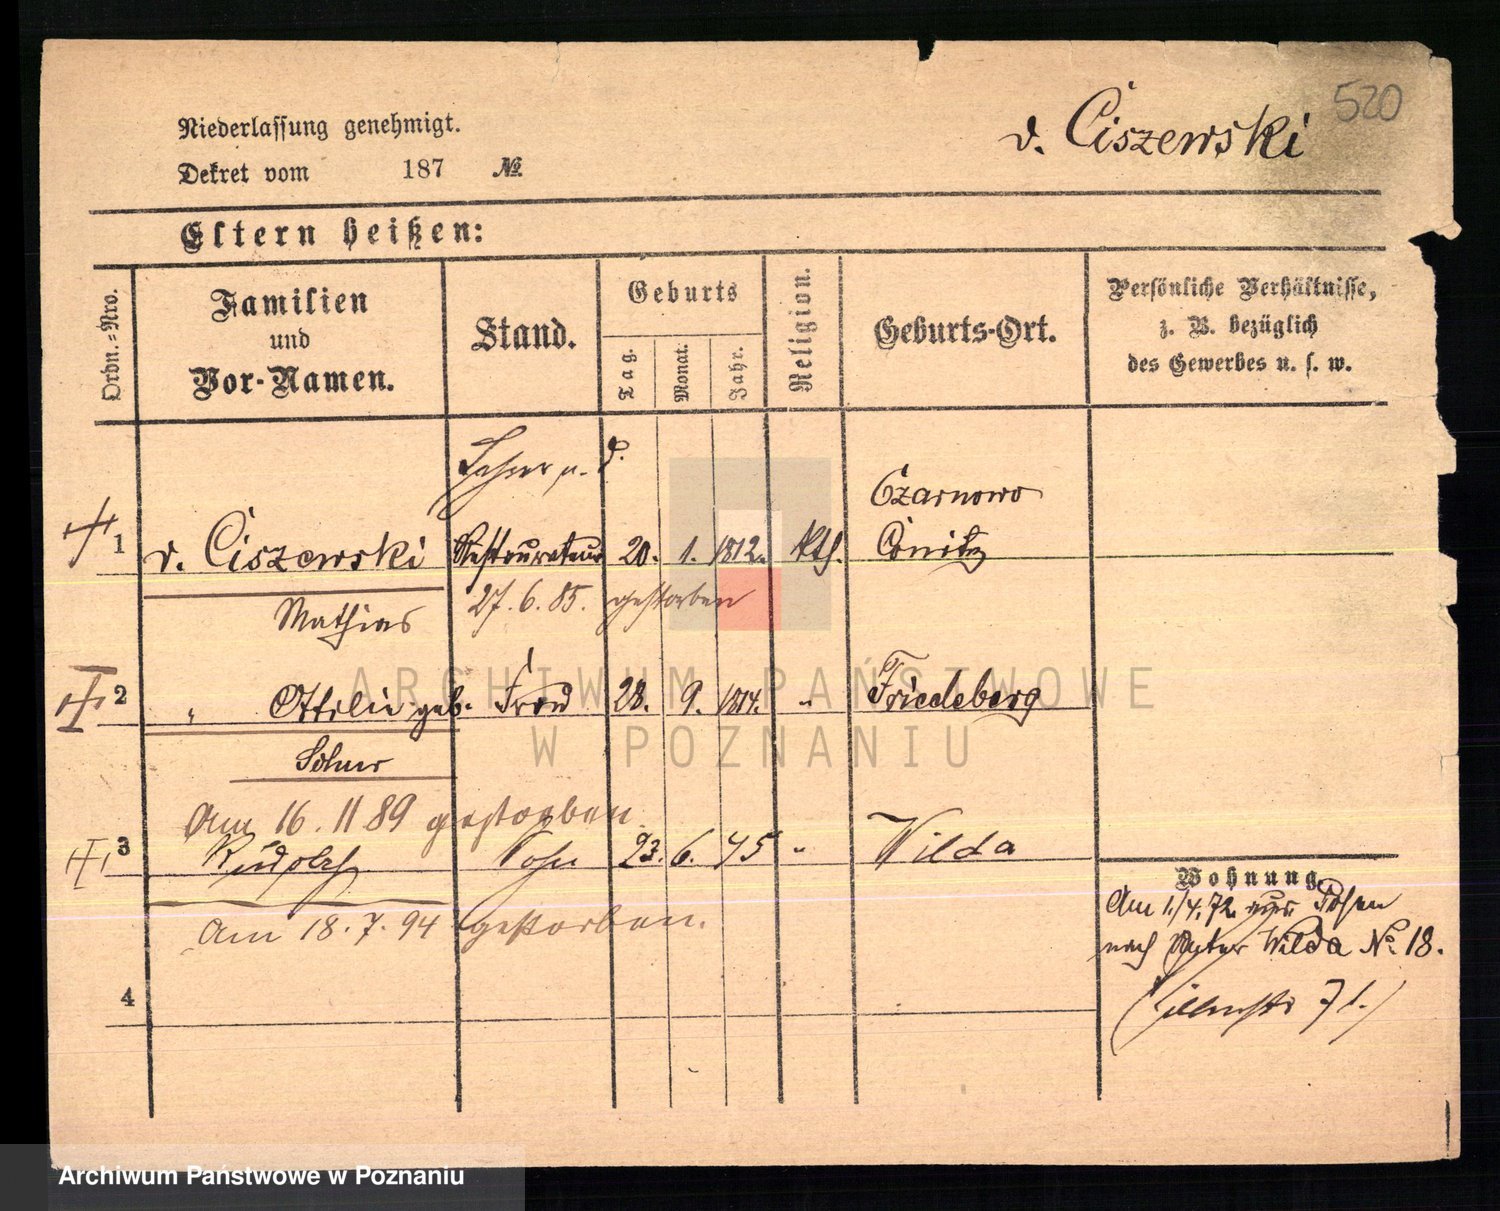 520
Niederlassung genehmigt.
v. Ciszewski
Dekret vom 187 №
Eltern heißen:
Ordn.-Nro.
Familien
und
Vor-Namen.
Stand.
Geburts
Tag.
Monat.
Jahr.
Religion.
Geburts-Ort.
Persönliche Verhältnisse,
z. B. bezüglich
des Gewerbes u. s. w.
Lehrer u.
Czarnowo
1 v. Ciszewski Restaurateur 20. 1. 1812. kth. Conitz
Mathias 27. 6. 85. gestorben
2 " Ottilie geb. Frau 28. 9. 1814. " Friedeberg
Am 16. 11 89 gestorben
3 Rudolph Sohn 23. 6. 45 " Wilda
Am 18. 7. 94 gestorben.
4
Wohnung
Am 1./4. 72 aus Posen
nach Unter Wilda No. 18.
71.)
ARCHIWUM PAŃSTWOWE
W POZNANIU
Archiwum Państwowe w Poznaniu